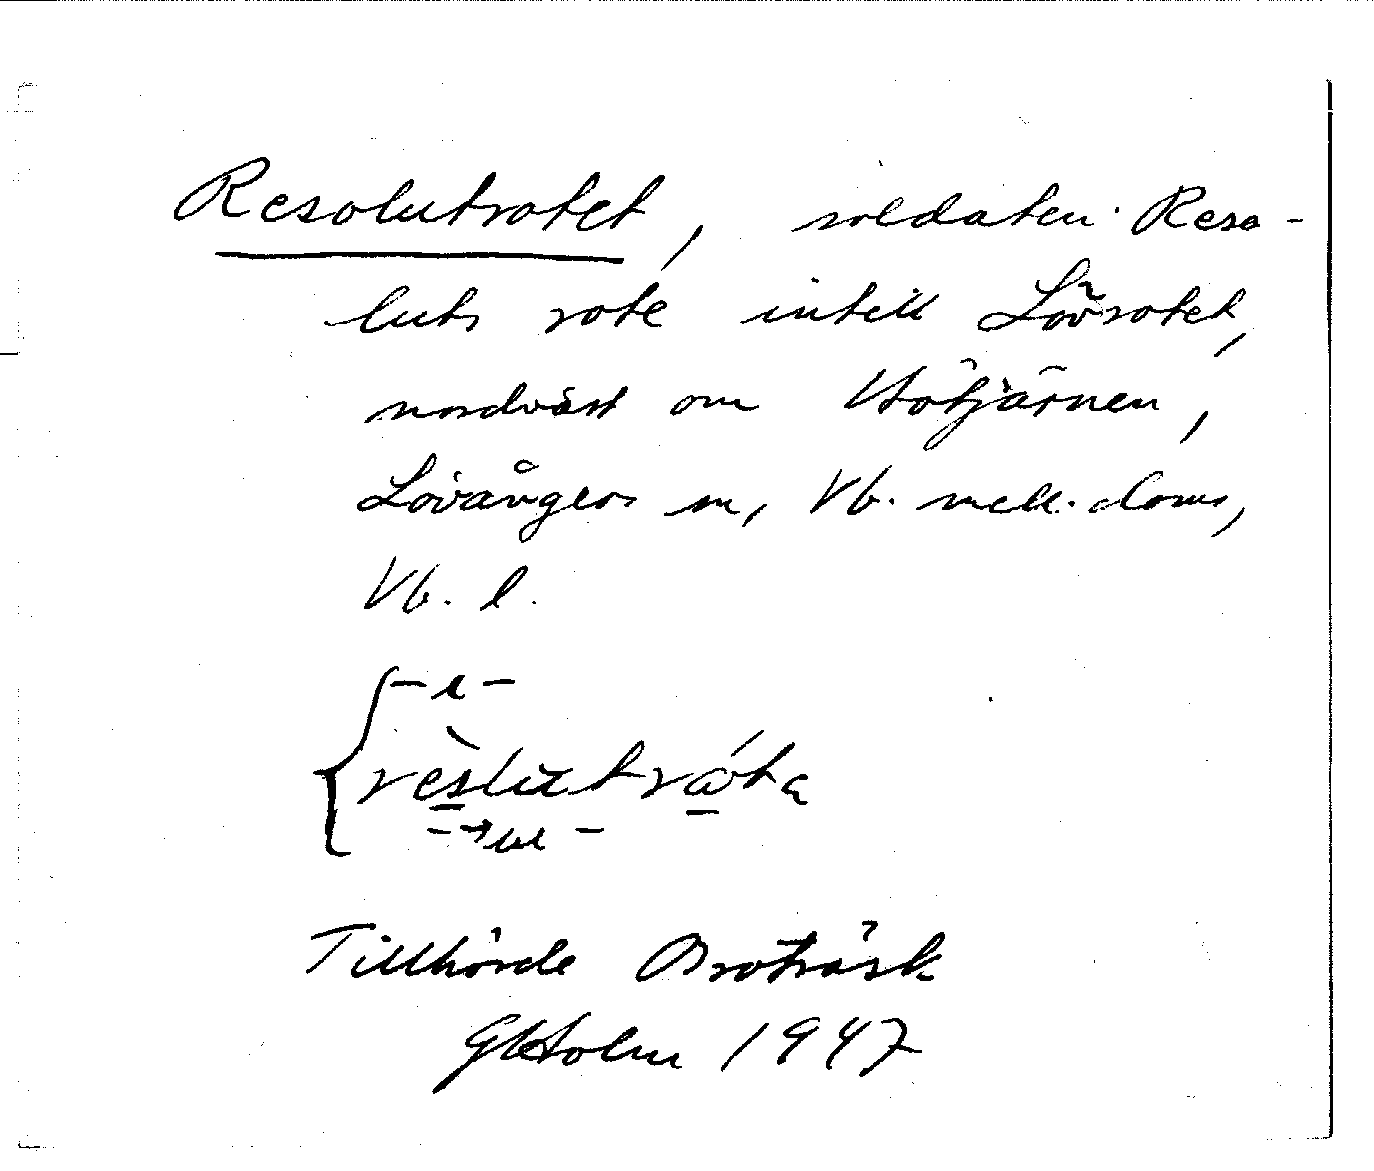 Resolutrotet, soldaten Reso-
luts rote intill Lövrotet,
nordväst om Hötjärnen,
Lövångers sn, Vb. mell. doms,
Vb. l.
Tillhörde Broträsk
GHolm 1947